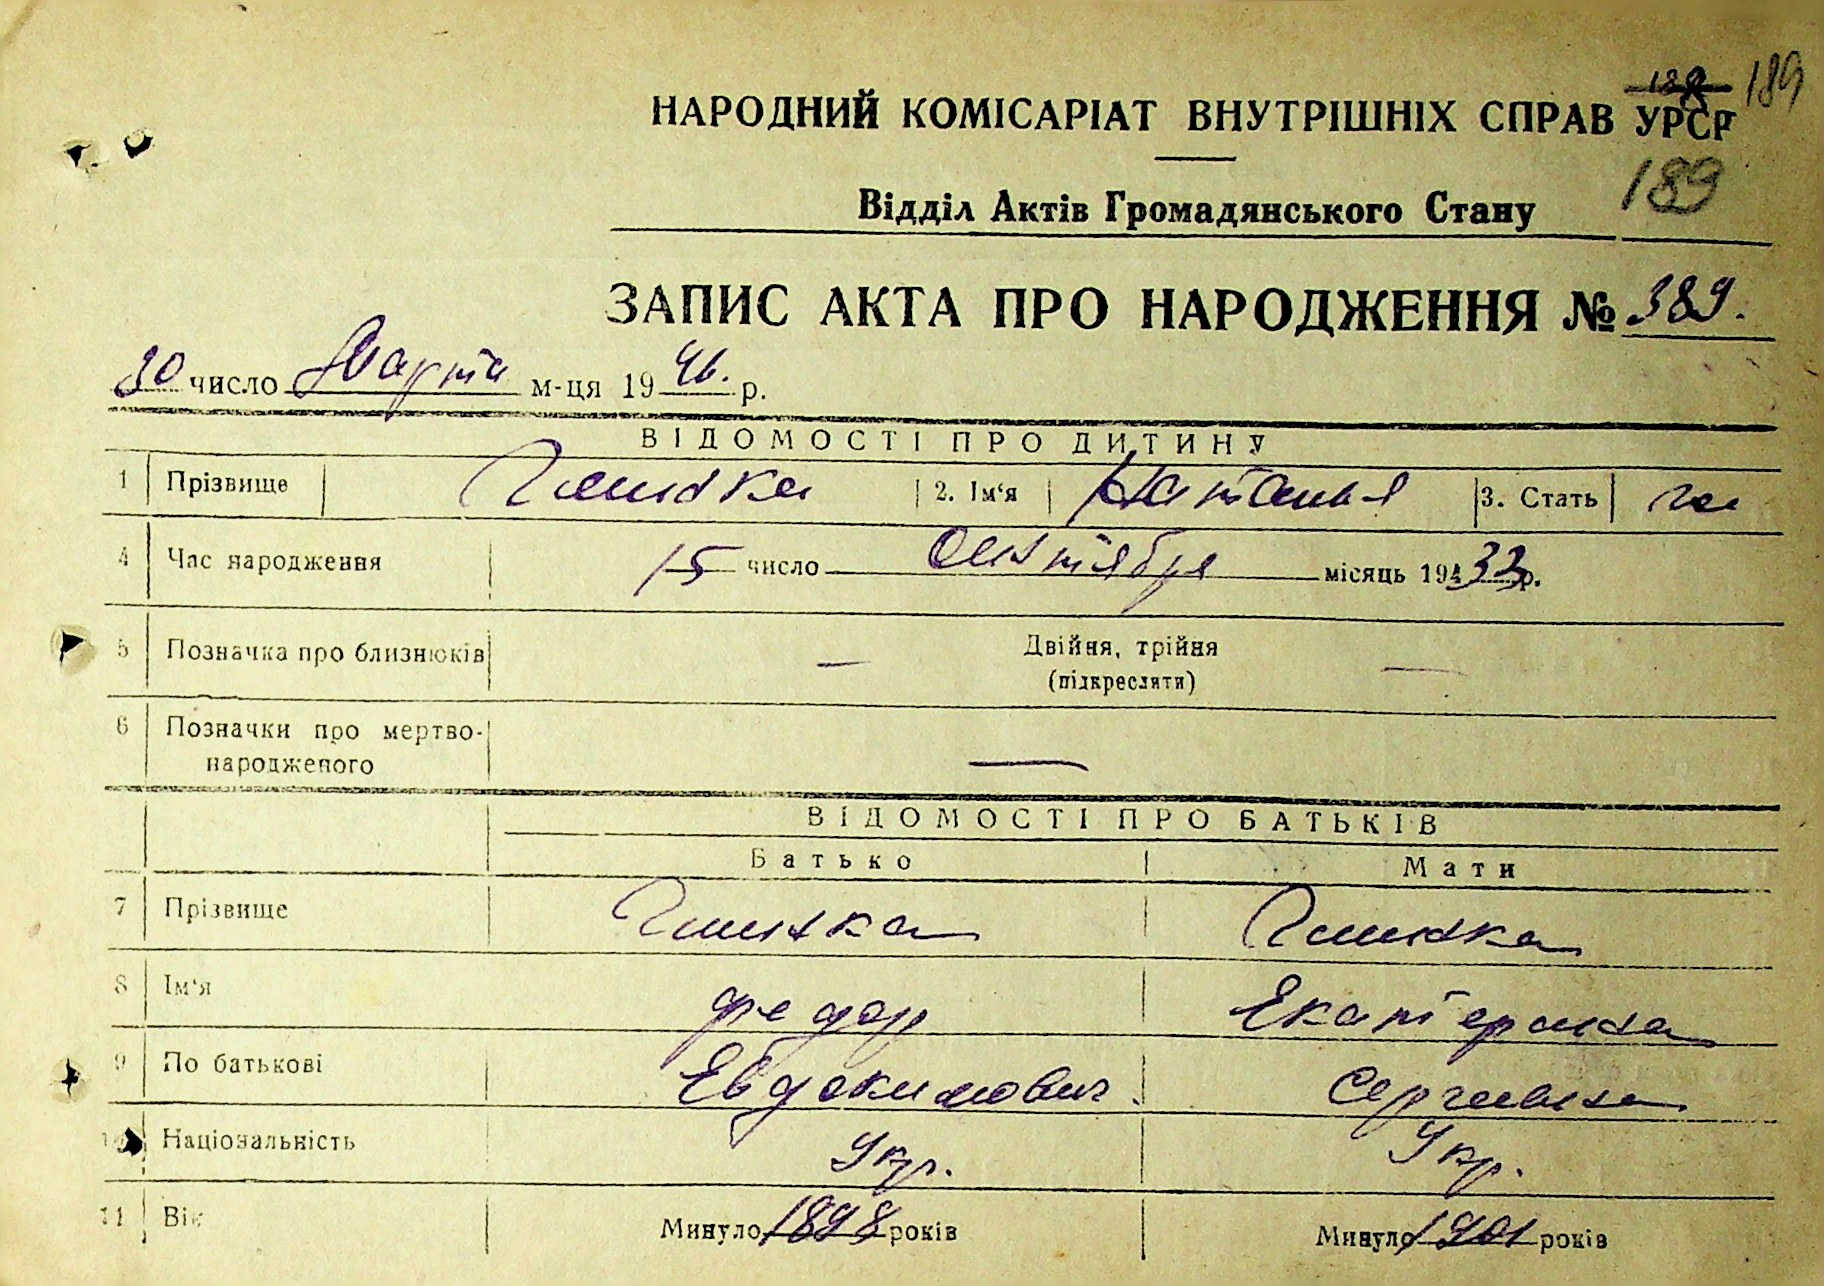 189 189
НАРОДНИЙ КОМІСАРІАТ ВНУТРІШНІХ СПРАВ УРСР
189
Відділ Актів Громадянського Стану
ЗАПИС АКТА ПРО НАРОДЖЕННЯ № 389.
30 число Марта м-ця 1946. р.
ВІДОМОСТІ ПРО ДИТИНУ
1 Прізвище 2. Ім‘я Наталья 3. Стать ж
4 Час народження 15 число Октября місяць 1933 р.
5 Позначка про близнюків — Двійня, трійня —
(підкреслити)
6 Позначки про мертво-
народженого —
ВІДОМОСТІ ПРО БАТЬКІВ
Батько Мати
7 Прізвище
8 Ім‘я Федор Екатерина
9 По батькові Евдокимович. Сергеевна
10 Національність Укр. Укр.
11 Вік Минуло 1898 років Минуло 1901 років